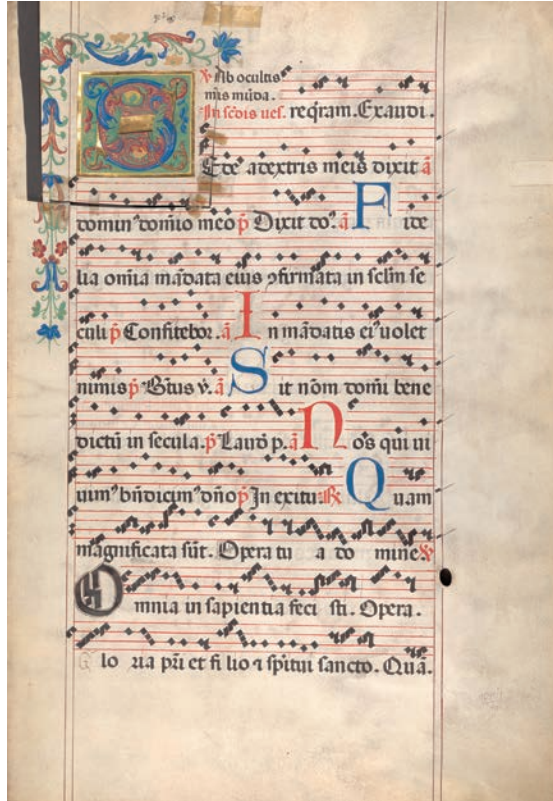 Ab ocultis
mis mūda.
In scdis ves. reqram. Exaudi.
SEde a dextris meis dixit ā
domin⁹ domīo meo p̄ Dixit do⁹. ā Fide
lia omīa mādata eius ꝯfirmata in sclm se
culi p̄ Confitebor. ā In mādatis ei⁹ uolet
nimis p̄ Btus v. ā Sit nōm domī bene
dictū in secula. p̄ Laud p. ā Nos qui ui
uim⁹ bn̄dicim⁹ dn̄o p̄ In exitu. ℟ Quam
magnificata sūt. Opera tu a do mine ℣
Omnia in sapientia feci sti. Opera.
Glo ria pri et fi lio ⁊ spiritui sancto. Quā.